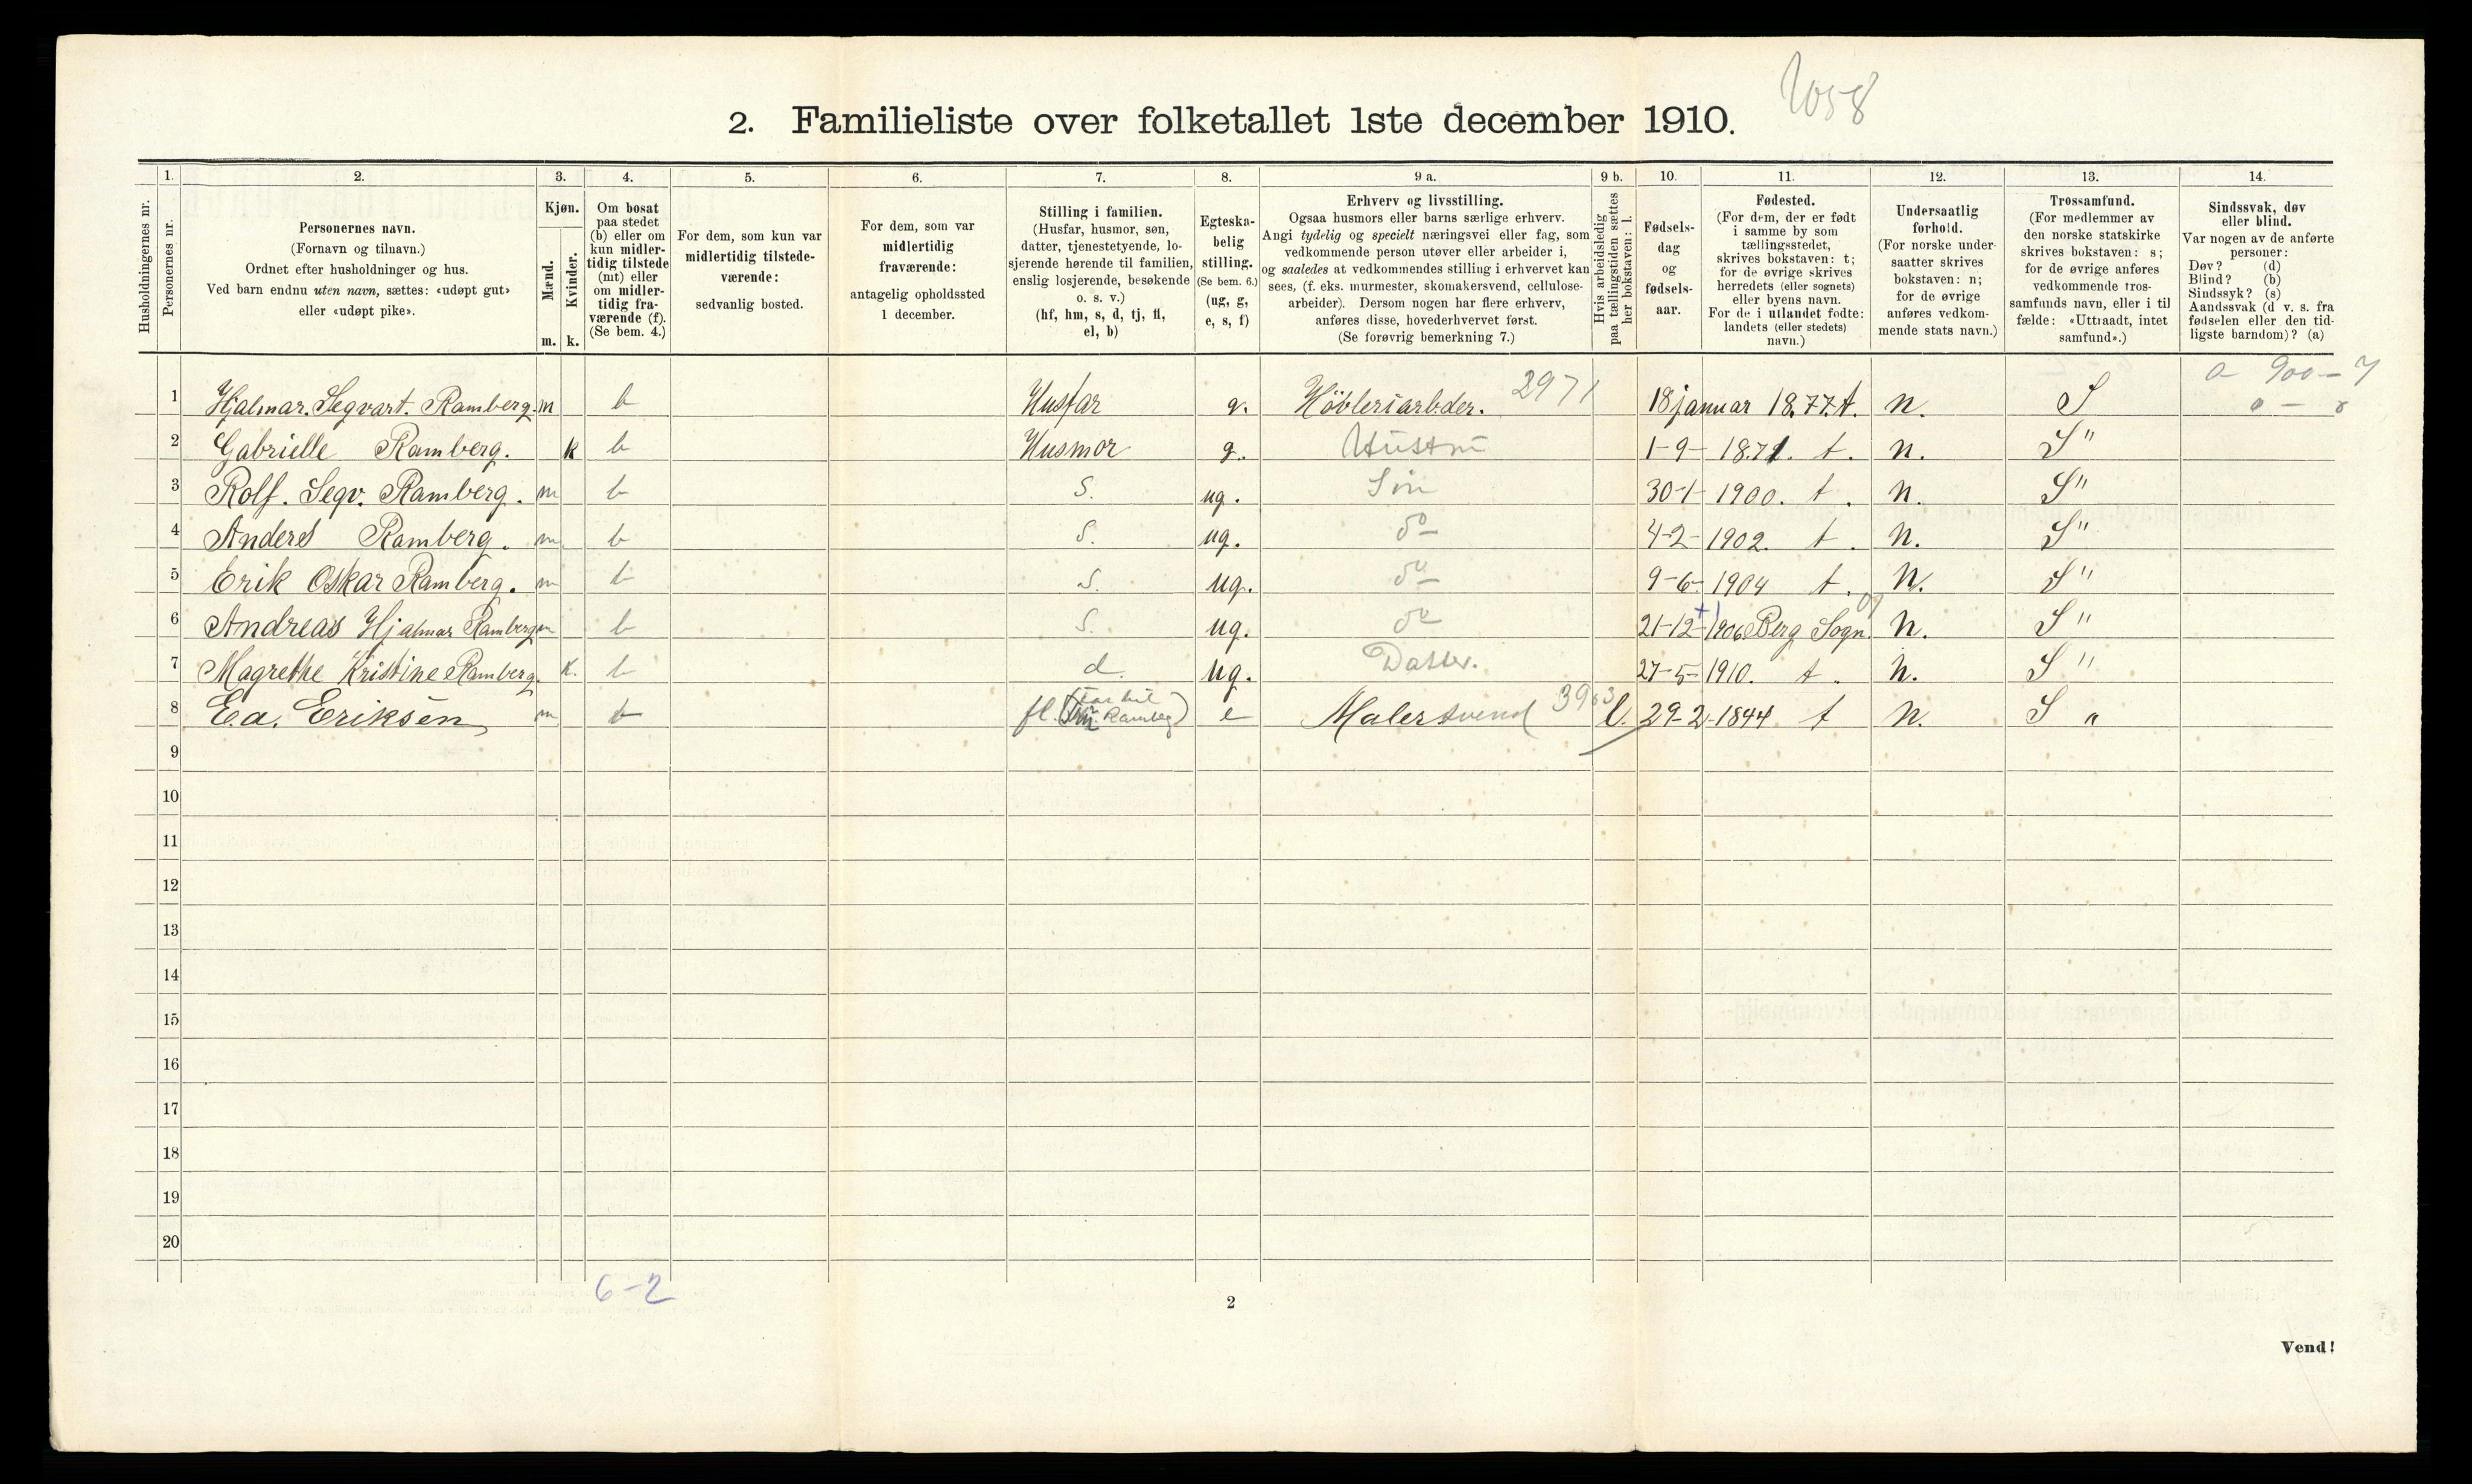 1058
2. Familieliste over folketallet 1ste december 1910.
Husholdningernes nr.
1.
Personernes nr.
2.
Personernes navn.
(Fornavn og tilnavn.)
Ordnet efter husholdninger og hus.
Ved barn endnu uten navn, sættes: «udøpt gut»
eller «udøpt pike».
3.
Kjøn.
Mænd.
Kvinder.
m. k.
4.
Om bosat
paa stedet
(b) eller om
kun midler-
tidig tilstede
(mt) eller
om midler-
tidig fra-
værende (f).
(Se bem. 4.)
5.
For dem, som kun var
midlertidig tilstede-
værende:
sedvanlig bosted.
6.
For dem, som var
midlertidig
fraværende:
antagelig opholdssted
1 december.
7.
Stilling i familien.
(Husfar, husmor, søn,
datter, tjenestetyende, lo-
sjerende hørende til familien,
enslig losjerende, besøkende
o. s. v.)
(hf, hm, s, d, tj, fl,
el, b)
8.
Egteska-
belig
stilling.
(Se bem. 6.)
(ug, g,
e, s, f)
9 a.
Erhverv og livsstilling.
Ogsaa husmors eller barns særlige erhverv.
Angi tydelig og specielt næringsvei eller fag, som
vedkommende person utøver eller arbeider i,
og saaledes at vedkommendes stilling i erhvervet kan
sees, (f. eks. murmester, skomakersvend, cellulose-
arbeider). Dersom nogen har flere erhverv,
anføres disse, hovederhvervet først.
(Se forøvrig bemerkning 7.)
9 b.
Hvis arbeidsledig
paa tællingstiden sættes
her bokstaven: l.
10.
Fødsels-
dag
og
fødsels-
aar.
11.
Fødested.
(For dem, der er født
i samme by som
tællingsstedet,
skrives bokstaven: t;
for de øvrige skrives
herredets (eller sognets)
eller byens navn.
For de i utlandet fødte:
landets (eller stedets)
navn.)
12.
Undersaatlig
forhold.
(For norske under-
saatter skrives
bokstaven: n;
for de øvrige
anføres vedkom-
mende stats navn.)
13.
Trossamfund.
(For medlemmer av
den norske statskirke
skrives bokstaven: s;
for de øvrige anføres
vedkommende tros-
samfunds navn, eller i til
fælde: «Uttraadt, intet
samfund».)
14.
Sindssvak, døv
eller blind.
Var nogen av de anførte
personer:
Døv? (d)
Blind? (b)
Sindssyk? (s)
Aandssvak (d v. s. fra
fødselen eller den tid-
ligste barndom)? (a)
0 - 900 - 7
0 - 8
1 Hjalmar. Segvart. Ramberg. m b Husfar g. Høvleriarbder. 2971 18 januar 18.77. t. n. S
2 Gabrielle Ramberg. k b Husmor g. Hustru 1-9- 18.71. t. n. S "
3 Rolf. Segv. Ramberg. m b S. ug. Søn 30-1- 1900. t. n. S "
4 Anders Ramberg. m b S. ug. do 4-2- 1902. t. n. S "
5 Erik Oskar Ramberg. m b S. ug. do 9-6- 1904 t. n. S "
6 Andreas Hjalmar Ramberg m b S. ug. do 21-12- 1906 Berg Sogn. n. S "
7 Magrethe Kristine Ramberg. k. b d. ug. Datter. 27-5- 1910. t. n. S "
8 E. a. Eriksen m b fl. (Far til Ramberg) e Malersvend 3963 l. 29-2-1844 t n. S "
9
10
11
12
13
14
15
16
17
18
19
20
6-2
2
Vend!